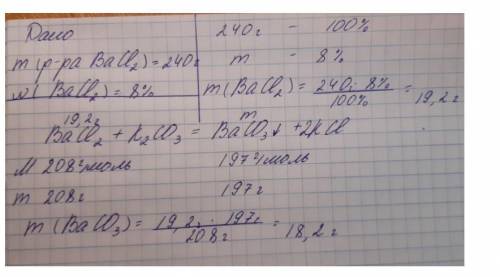 Дано
m(р-ра BaCl₂)=240г
ω(BaCl₂)=8%
240г - 100%
m - 8%
m(BaCl₂)= 240·8% / 100% = 19,2г
19,2г m
BaCl₂ + K₂CO₃ = BaCO₃↓ +2KCl
M 208г/моль 197г/моль
m 208г 197г
m(BaCO₃)= 19,2г · 197г / 208г = 18,2г